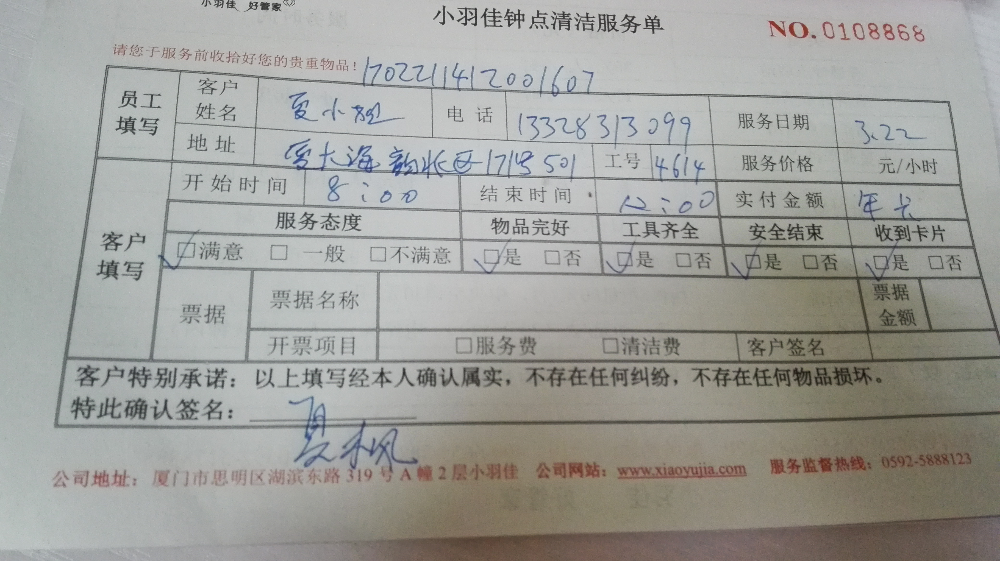 小羽佳 好管家
小羽佳钟点清洁服务单
NO. 0108868
请您于服务前收拾好您的贵重物品！
1702211412001607
员工填写 客户姓名 夏小姐 电话 13328313099 服务日期 3.22
地址 海韵北区17号501 工号 4614 服务价格 元/小时
客户填写 开始时间 8:00 结束时间 12:00 实付金额 年卡
服务态度 物品完好 工具齐全 安全结束 收到卡片
□满意 □一般 □不满意 □是 □否 □是 □否 □是 □否 □是 □否
票据 票据名称 票据金额
开票项目 □服务费 □清洁费 客户签名
客户特别承诺：以上填写经本人确认属实，不存在任何纠纷，不存在任何物品损坏。
特此确认签名：夏枫
公司地址：厦门市思明区湖滨东路319号A幢2层小羽佳 公司网站：www.xiaoyujia.com 服务监督热线：0592-5888123